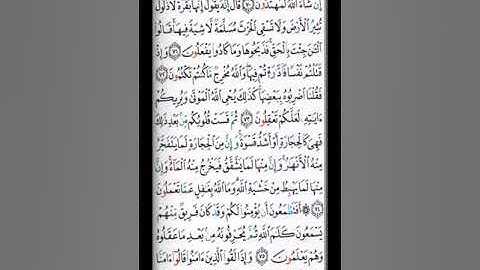 إِن شَاءَ اللَّهُ لَمُهْتَدُونَ ٧٠ قَالَ إِنَّهُ يَقُولُ إِنَّهَا بَقَرَةٌ لَّا ذَلُولٌ
تُثِيرُ الْأَرْضَ وَلَا تَسْقِي الْحَرْثَ مُسَلَّمَةٌ لَّا شِيَةَ فِيهَا قَالُوا
الْآنَ جِئْتَ بِالْحَقِّ فَذَبَحُوهَا وَمَا كَادُوا يَفْعَلُونَ ٧١ وَإِذْ
قَتَلْتُمْ نَفْسًا فَادَّارَأْتُمْ فِيهَا وَاللَّهُ مُخْرِجٌ مَّا كُنتُمْ تَكْتُمُونَ ٧٢
فَقُلْنَا اضْرِبُوهُ بِبَعْضِهَا كَذَٰلِكَ يُحْيِي اللَّهُ الْمَوْتَىٰ وَيُرِيكُمْ
آيَاتِهِ لَعَلَّكُمْ تَعْقِلُونَ ٧٣ ثُمَّ قَسَتْ قُلُوبُكُم مِّن بَعْدِ ذَٰلِكَ
فَهِيَ كَالْحِجَارَةِ أَوْ أَشَدُّ قَسْوَةً وَإِنَّ مِنَ الْحِجَارَةِ لَمَا يَتَفَجَّرُ
مِنْهُ الْأَنْهَارُ وَإِنَّ مِنْهَا لَمَا يَشَّقَّقُ فَيَخْرُجُ مِنْهُ الْمَاءُ وَإِنَّ
مِنْهَا لَمَا يَهْبِطُ مِنْ خَشْيَةِ اللَّهِ وَمَا اللَّهُ بِغَافِلٍ عَمَّا تَعْمَلُونَ
٧٤ ۞ أَفَتَطْمَعُونَ أَن يُؤْمِنُوا لَكُمْ وَقَدْ كَانَ فَرِيقٌ مِّنْهُمْ
يَسْمَعُونَ كَلَامَ اللَّهِ ثُمَّ يُحَرِّفُونَهُ مِن بَعْدِ مَا عَقَلُوهُ
وَهُمْ يَعْلَمُونَ ٧٥ وَإِذَا لَقُوا الَّذِينَ آمَنُوا قَالُوا آمَنَّا